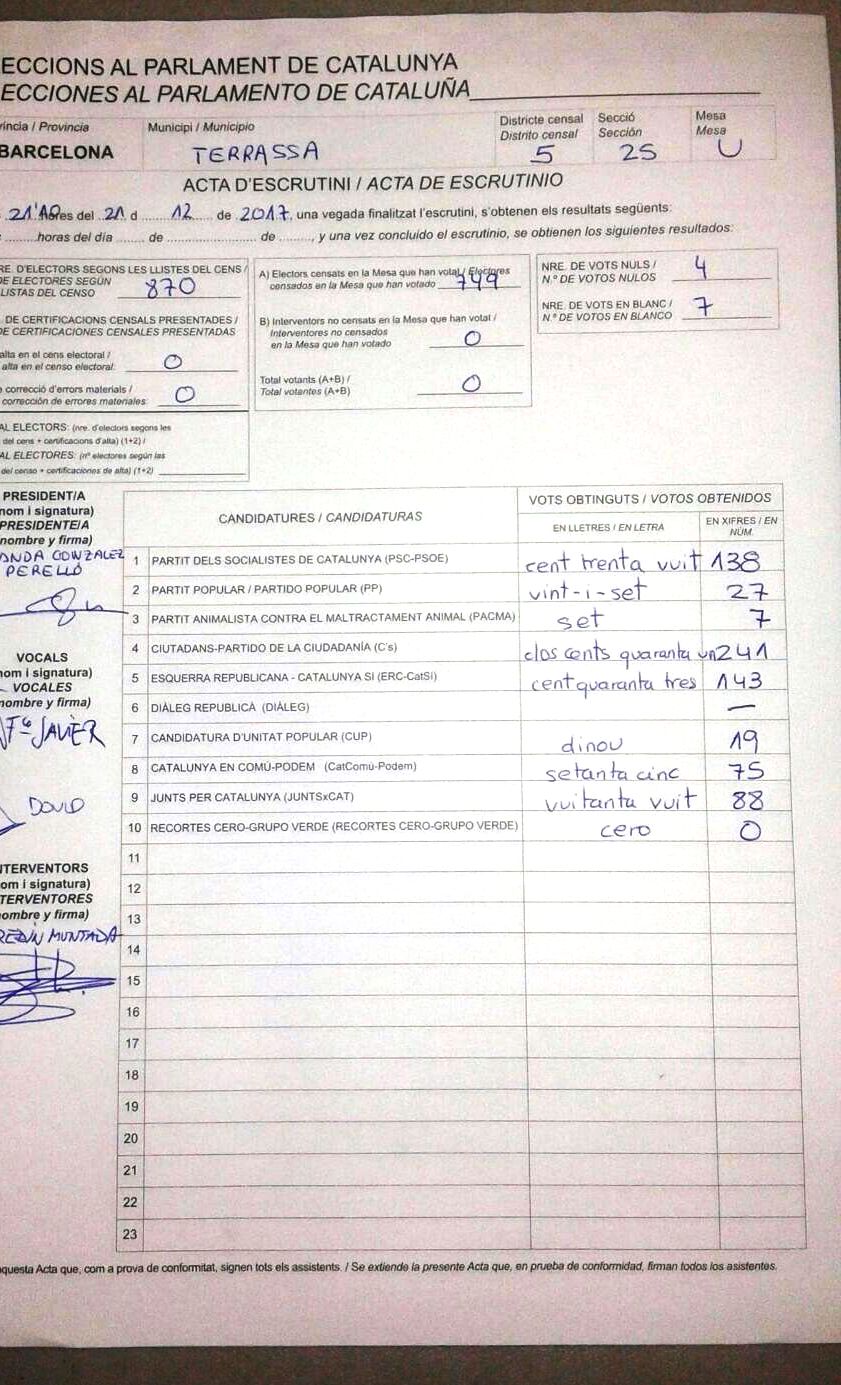 ECCIONS AL PARLAMENT DE CATALUNYA
ECCIONES AL PARLAMENTO DE CATALUÑA
víncia / Provincia
BARCELONA
Municipi / Municipio
TERRASSA
Districte censal
Distrito censal
5
Secció
Sección
25
Mesa
Mesa
U
ACTA D'ESCRUTINI / ACTA DE ESCRUTINIO
hores del 21 d 12 de 2017, una vegada finalitzat l'escrutini, s'obtenen els resultats següents:
horas del día de de , y una vez concluido el escrutinio, se obtienen los siguientes resultados:
RE. D'ELECTORS SEGONS LES LLISTES DEL CENS /
DE ELECTORES SEGÚN
LISTAS DEL CENSO 870
DE CERTIFICACIONS CENSALS PRESENTADES /
DE CERTIFICACIONES CENSALES PRESENTADAS
alta en el cens electoral /
alta en el censo electoral: 0
correcció d'errors materials /
corrección de errores materiales: 0
AL ELECTORS: (nre. d'electors segons les
del cens + certificacions d'alta) (1+2) /
AL ELECTORES: (nº electores según las
del censo + certificaciones de alta) (1+2)
A) Electors censats en la Mesa que han votat / Electores
censados en la Mesa que han votado 749
B) Interventors no censats en la Mesa que han votat /
Interventores no censados
en la Mesa que han votado 0
Total votants (A+B) /
Total votantes (A+B) 0
NRE. DE VOTS NULS /
N.º DE VOTOS NULOS 4
NRE. DE VOTS EN BLANC /
N.º DE VOTOS EN BLANCO 7
PRESIDENT/A
nom i signatura)
PRESIDENTE/A
nombre y firma)
ANDA GONZALEZ
PERELLÓ
VOCALS
nom i signatura)
VOCALES
nombre y firma)
JAVIER
DAVID
NTERVENTORS
om i signatura)
TERVENTORES
ombre y firma)
MUNTADA
CANDIDATURES / CANDIDATURAS
VOTS OBTINGUTS / VOTOS OBTENIDOS
EN LLETRES / EN LETRA
EN XIFRES / EN NÚM.
1 PARTIT DELS SOCIALISTES DE CATALUNYA (PSC-PSOE) cent trenta vuit 138
2 PARTIT POPULAR / PARTIDO POPULAR (PP) vint-i-set 27
3 PARTIT ANIMALISTA CONTRA EL MALTRACTAMENT ANIMAL (PACMA) set 7
4 CIUTADANS-PARTIDO DE LA CIUDADANÍA (C's) dos cents quaranta un 241
5 ESQUERRA REPUBLICANA - CATALUNYA SI (ERC-CatSí) cent quaranta tres 143
6 DIÀLEG REPUBLICÀ (DIÀLEG) —
7 CANDIDATURA D'UNITAT POPULAR (CUP) dinou 19
8 CATALUNYA EN COMÚ-PODEM (CatComú-Podem) setanta cinc 75
9 JUNTS PER CATALUNYA (JUNTSxCAT) vuitanta vuit 88
10 RECORTES CERO-GRUPO VERDE (RECORTES CERO-GRUPO VERDE) cero 0
11
12
13
14
15
16
17
18
19
20
21
22
23
questa Acta que, com a prova de conformitat, signen tots els assistents. / Se extiende la presente Acta que, en prueba de conformidad, firman todos los asistentes.